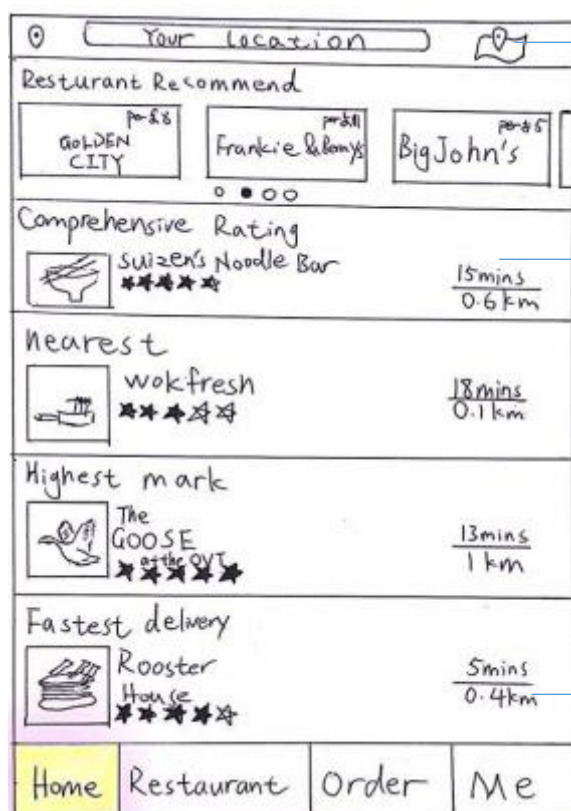 Your location
Resturant Recommend
per £8
GOLDEN
CITY
per £11
Frankie & Bennys
per £5
Big John's
Comprehensive Rating
suizen's Noodle Bar
15mins
0.6 km
nearest
wokfresh
18mins
0.1km
Highest mark
The
GOOSE
at the OVT
13mins
1 km
Fastest delivery
Rooster
House
5mins
0.4km
Home Restaurant Order Me